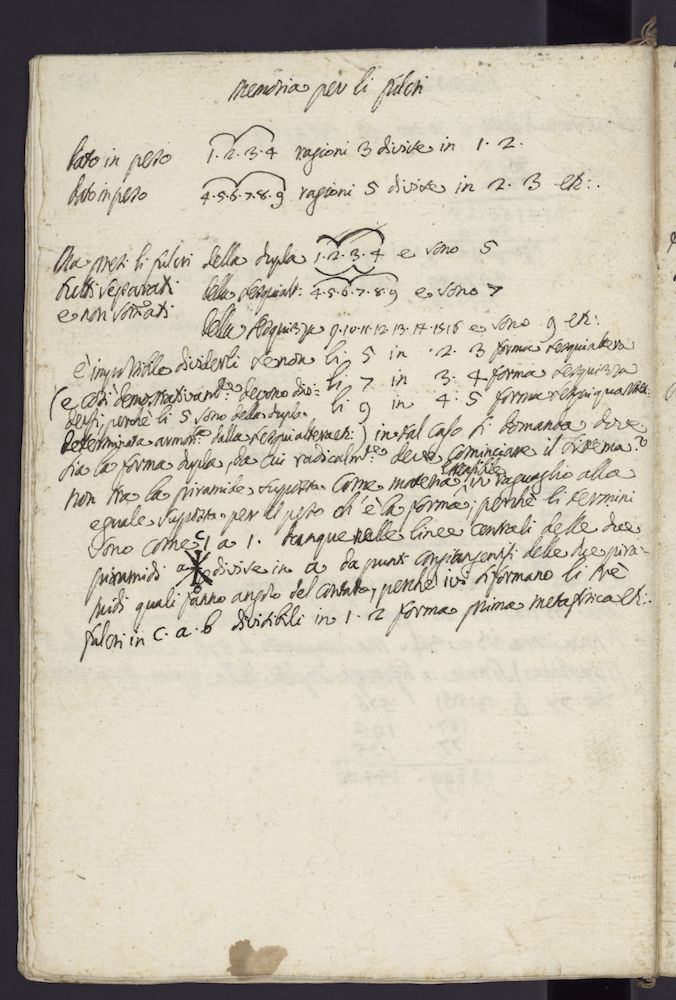 Memoria per li fulcri
Dato in peso 1·2·3·4 ragioni 3 divise in 1·2·
Dato in peso 4·5·6·7·8·9 ragioni 5 divise in 2·3 etc:
Ma presi li fulcri della dupla 1·2·3·4 e sono 5
tutti separati della sesquialt: 4·5·6·7·8·9 e sono 7
e non sommati
della sesquiterza 9·10·11·12·13·14·15·16 e sono 9 etc:
è impossibile dividerli se non li 5 in 2·3 forma sesquialtera
(e così demostrativamte: devono divi- li 7 in 3·4 forma sesquiterza
dersi, perchè li 5 sono della dupla li 9 in 4·5 forma sesquiquarta
determinata armonte: dalla sesquialtera etc:) in tal caso si domanda dove
sia la forma dupla, da cui radicalmte: deve cominciare il sistema?
non sia la piramide supposta come materia creabile in raguaglio alla
eguale supposta per il peso ch'è la forma; perchè li termini
sono come 1 a 1· Dunque nelle linee centrali delle due
piramidi c a b divise in a da punti congiungentisi delle due pira-
midi quali fanno angolo del contatto, perchè ivi si formano li trè
fulcri in c·a·b divisibili in 1·2 forma prima metafisica etc: